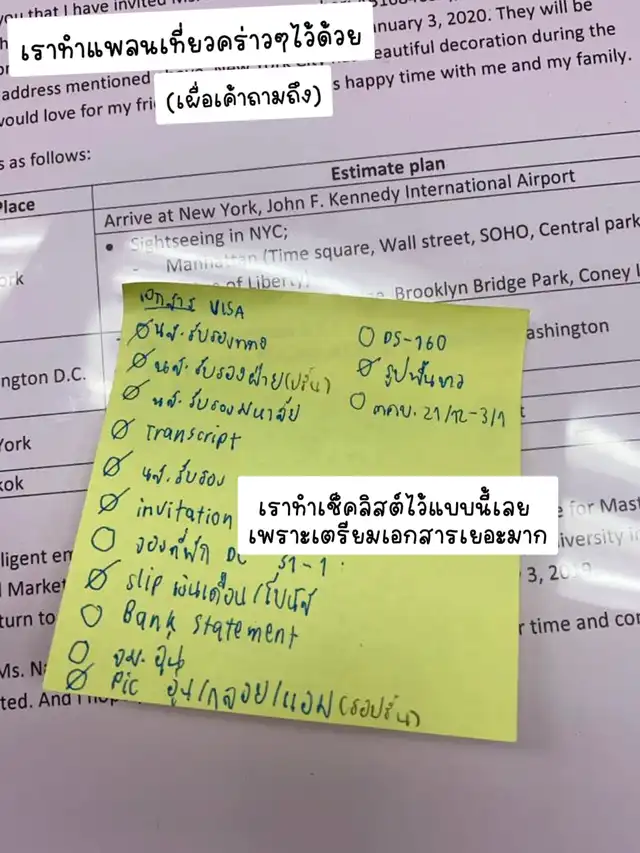 you that I have invited Ms.
January 3, 2020. They will be
เราทำแพลนเที่ยวคร่าวๆไว้ด้วย
address mentioned
beautiful decoration during the
(เผื่อเค้าถามถึง)
would love for my fri
s happy time with me and my family.
s as follows:
Place
Estimate plan
Arrive at New York, John F. Kennedy International Airport
• Sightseeing in NYC;
- Manhattan (Time square, Wall street, SOHO, Central park
of Liberty)
Brooklyn Bridge Park, Coney I
ashington
ngton D.C.
York
kok
เอกสาร VISA
นส.รับรองการทำงาน
นส.รับรองฝ่าย(ปริ้น)
นส.รับรองมหาลัย
Transcript
นส.รับรอง
invitation
จองที่พัก DC 31-1
slip เงินเดือน/โบนัส
Bank statement
จม.อุ่น
Pic อุ่น/กลอย/แอม(รอปริ้น)
DS-160
รูปพื้นขาว
21/12-3/1
เราทำเช็คลิสต์ไว้แบบนี้เลย
เพราะเตรียมเอกสารเยอะมาก
e for Mast
lligent em
iversity in
d Market
3, 20
turn to
r time and con
Ms. Na
ted. And I hop